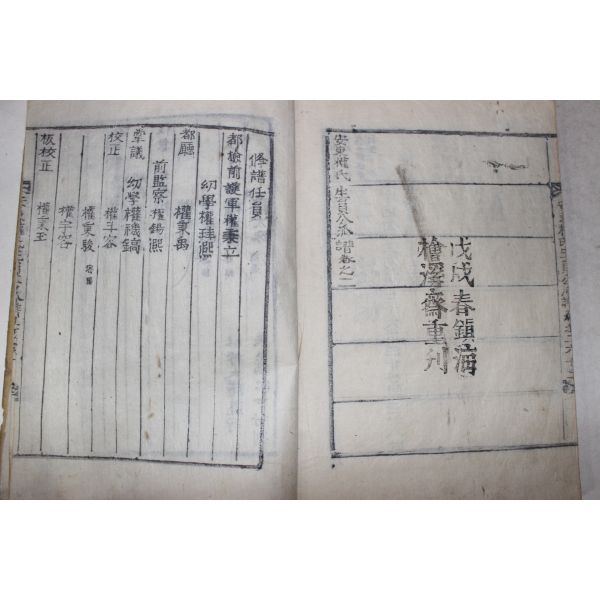 戊戌春鎮
檜溪齋重刊
安東權氏生員公派譜卷之
修譜任員
都檢前護軍權秉立
幼學權珪熙
都廳 權秉禹
前監察權錫熙
掌議 幼學權 鎬
校正 權斗容
權秉駿
權宇容
板校正 權秉至